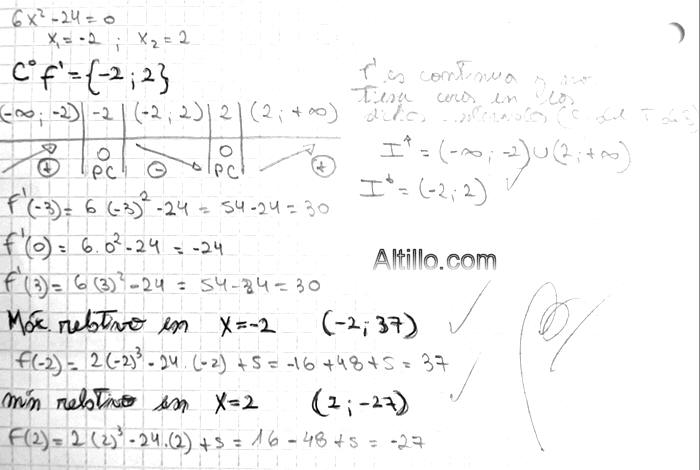 6x² - 24 = 0
x₁ = -2 ; x₂ = 2
C° f' = {-2 ; 2}
(-∞ ; -2) | -2 | (-2 ; 2) | 2 | (2 ; +∞)
+ | 0 PC | - | 0 PC | +
f'(-3) = 6(-3)² - 24 = 54 - 24 = 30
f'(0) = 6.0² - 24 = -24
f'(3) = 6(3)² - 24 = 54 - 24 = 30
Máx relativo en x = -2 (-2 ; 37)
f(-2) = 2(-2)³ - 24 . (-2) + 5 = -16 + 48 + 5 = 37
mín relativo en x = 2 (2 ; -27)
f(2) = 2(2)³ - 24.(2) + 5 = 16 - 48 + 5 = -27
f' es continua y no
ceros en los
I↑ = (-∞ ; -2) ∪ (2 ; +∞)
I↓ = (-2 ; 2)
Altillo.com